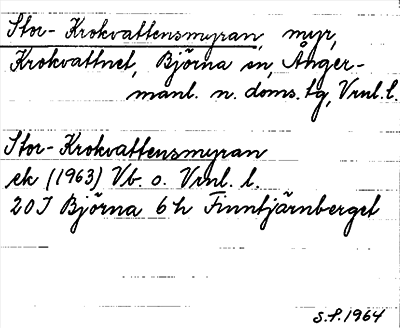 Stor-Krokvattensmyran, myr,
Krokvattnet, Björna sn, Ånger-
manl. n. doms.tg, Vrnl.l.
Stor-Krokvattensmyran
ek (1963) Vb. o. Vrnl. l.
20 J Björna 6 h Finntjärnberget
S.P. 1964